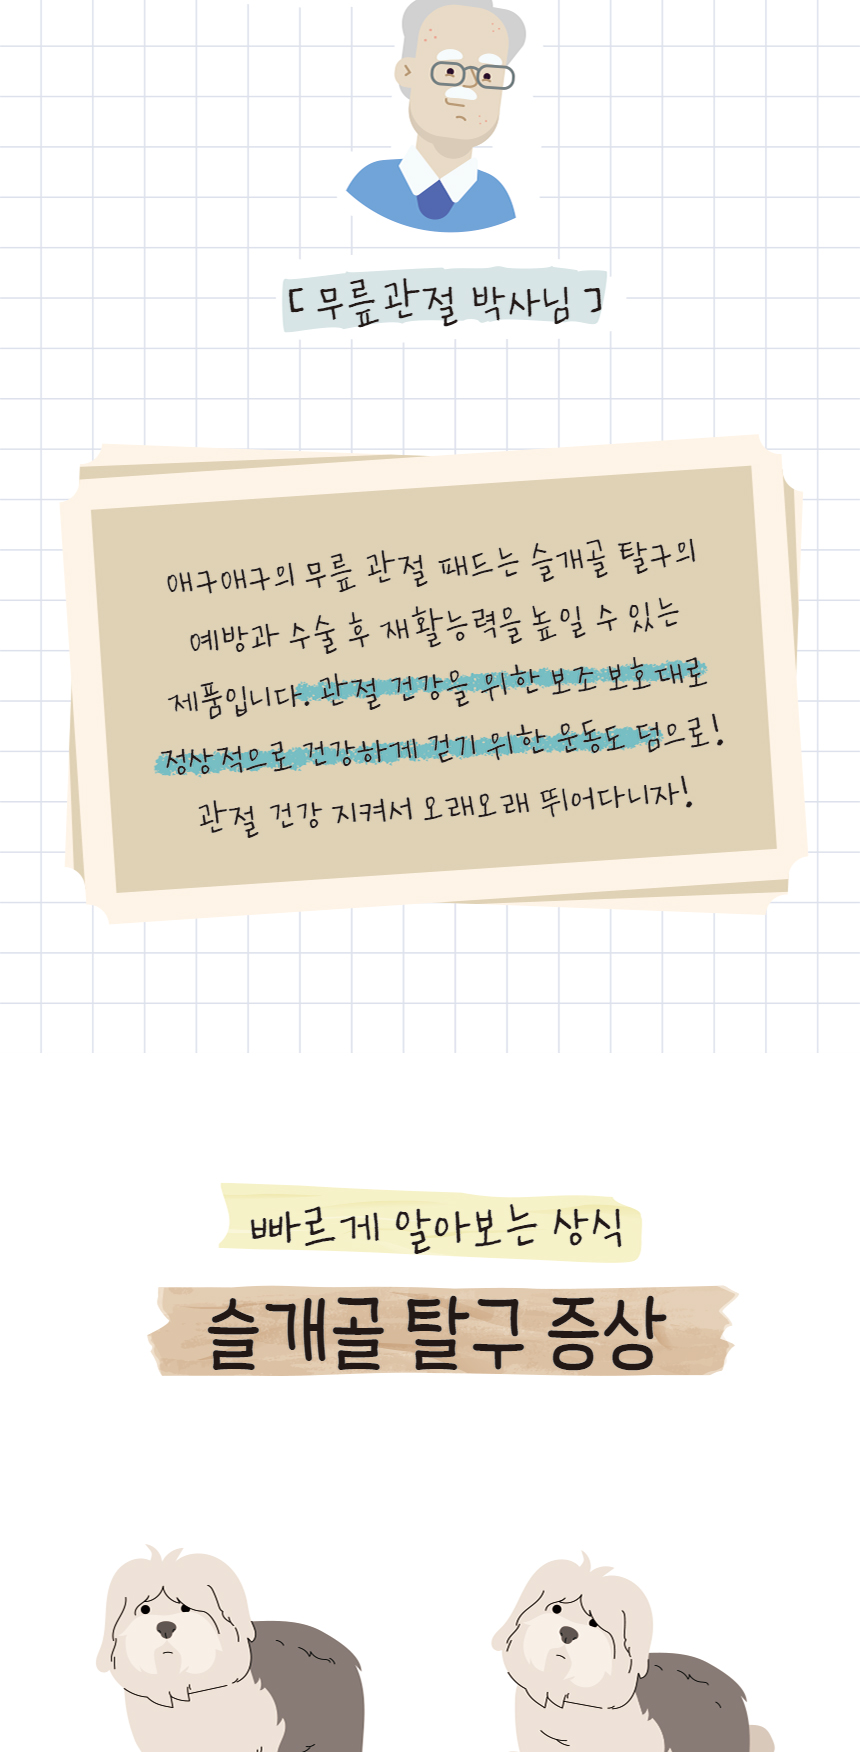 [ 무릎관절 박사님 ]
애구애구의 무릎 관절 패드는 슬개골 탈구의
예방과 수술 후 재활능력을 높일 수 있는
제품입니다. 관절 건강을 위한 보조 보호대로
정상적으로 건강하게 걷기 위한 운동도 덤으로!
관절 건강 지켜서 오래오래 뛰어다니자!
빠르게 알아보는 상식
슬개골 탈구 증상